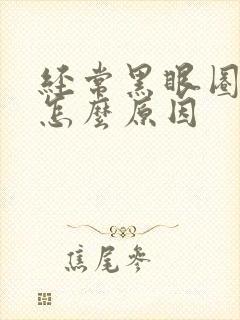 経常黑眼圈
怎麼原因
焦尾參